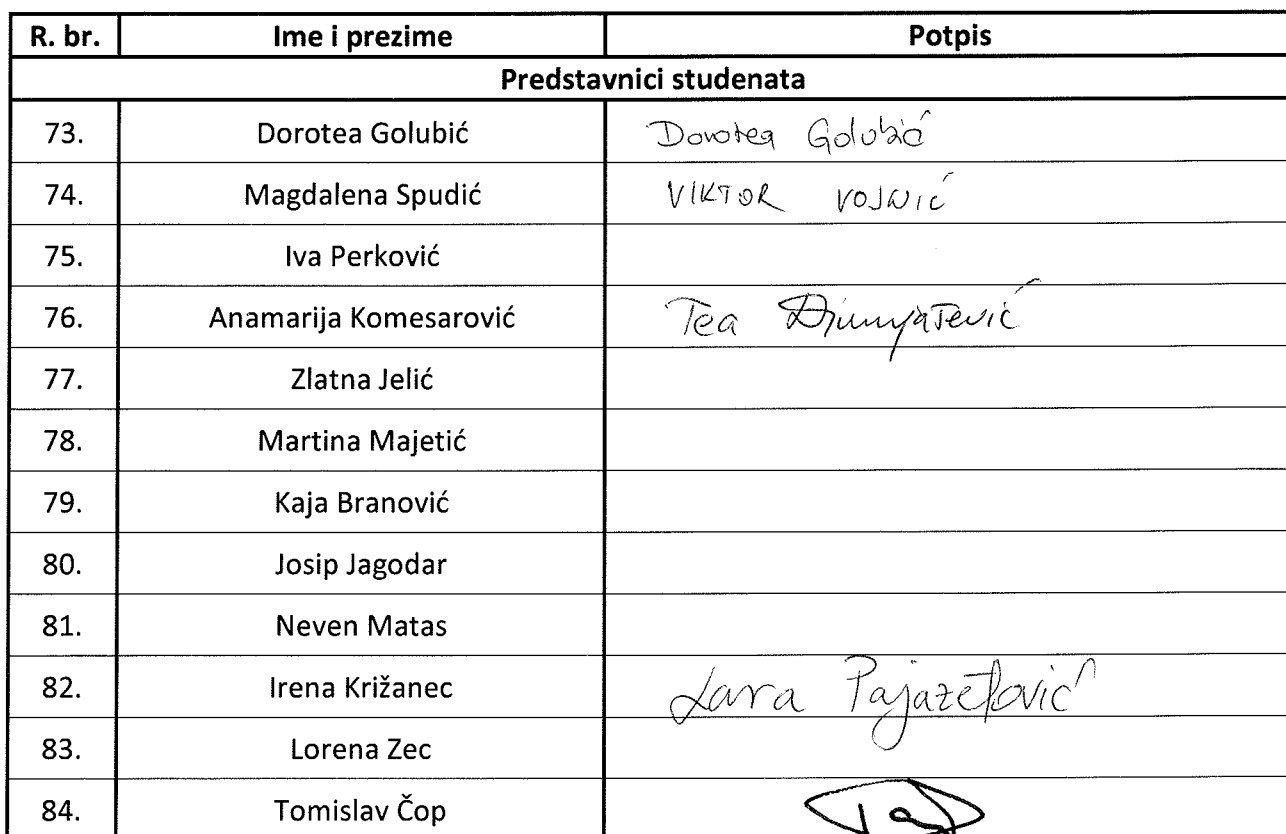 R. br. Ime i prezime Potpis
Predstavnici studenata
73. Dorotea Golubić Dorotea Golubić
74. Magdalena Spudić VIKTOR VOJNIĆ
75. Iva Perković
76. Anamarija Komesarović Tea
77. Zlatna Jelić
78. Martina Majetić
79. Kaja Branović
80. Josip Jagodar
81. Neven Matas
82. Irena Križanec Lara Pajazetović
83. Lorena Zec
84. Tomislav Čop